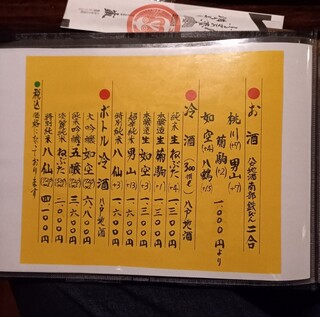 お酒 八戸地酒南部鉄びん 二合
桃川(+7) 男山(+7)
菊駒(+2) 1000円より
如空(+4) 八鶴(+5)
冷酒(300ml) 八戸地酒
純米 生ねぶた(+4) 一三〇〇円
本醸造生 菊駒(+1) 一三〇〇円
本醸造 生如空(+3) 一三〇〇円
超辛純米 男山(+13) 一六〇〇円
特別純米 八仙(+3) 一六〇〇円
ボトル冷酒 八戸地酒
大吟醸 如空 六八〇〇円
純米吟醸 五醸 三八〇〇円
淡麗純米 ねぶた 二〇〇〇円
特別純米 八仙 四一〇〇円
税込価格になっております